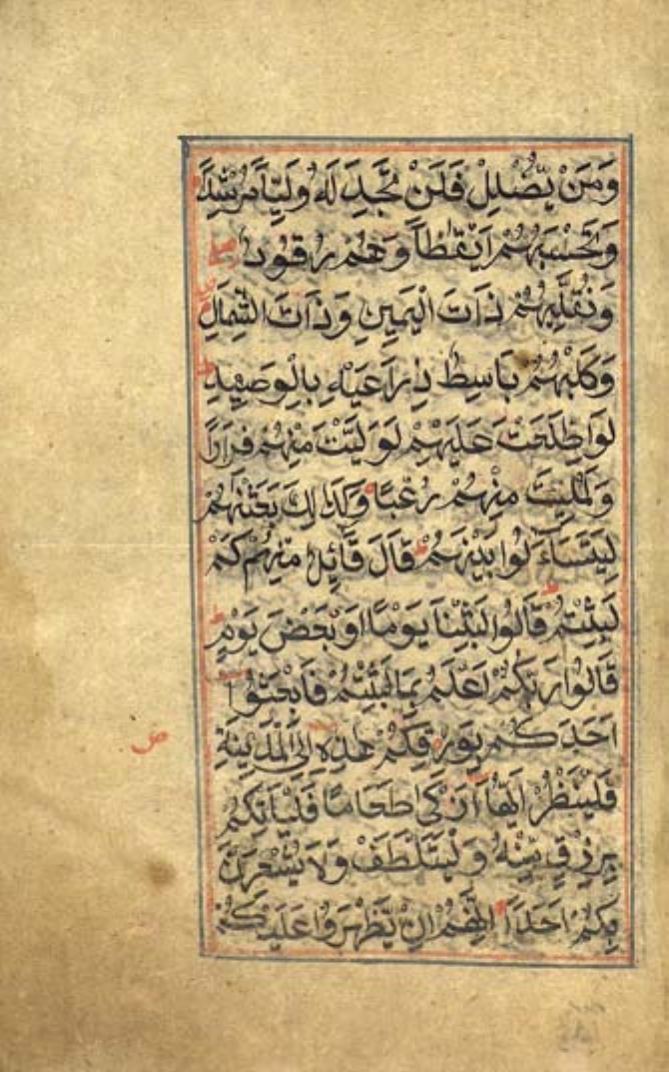 وَمَنْ يُضْلِلْ فَلَنْ تَجِدَ لَهُ وَلِيًّا مُرْشِدًا
وَتَحْسَبُهُمْ اَيْقَاظًا وَهُمْ رُقُودٌ
وَنُقَلِّبُهُمْ ذَاتَ الْيَمِينِ وَذَاتَ الشِّمَالِ
وَكَلْبُهُمْ بَاسِطٌ ذِرَاعَيْهِ بِالْوَصِيدِ
لَوِ اطَّلَعْتَ عَلَيْهِمْ لَوَلَّيْتَ مِنْهُمْ فِرَارًا
وَلَمُلِئْتَ مِنْهُمْ رُعْبًا وَكَذَلِكَ بَعَثْنَهُمْ
لِيَتَسَاءَلُوا بَيْنَهُمْ قَالَ قَائِلٌ مِنْهُمْ كَمْ
لَبِثْتُمْ قَالُوا لَبِثْنَا يَوْمًا اَوْ بَعْضَ يَوْمٍ
قَالُوا رَبُّكُمْ اَعْلَمُ بِمَا لَبِثْتُمْ فَابْعَثُوا
اَحَدَكُمْ بِوَرِقِكُمْ هَذِهِ اِلَى الْمَدِينَةِ
فَلْيَنْظُرْ اَيُّهَا اَزْكَى طَعَامًا فَلْيَاْتِكُمْ
بِرِزْقٍ مِنْهُ وَلْيَتَلَطَّفْ وَلَا يُشْعِرَنَّ
بِكُمْ اَحَدًا اِنَّهُمْ اِنْ يَظْهَرُوا عَلَيْكُمْ
ص